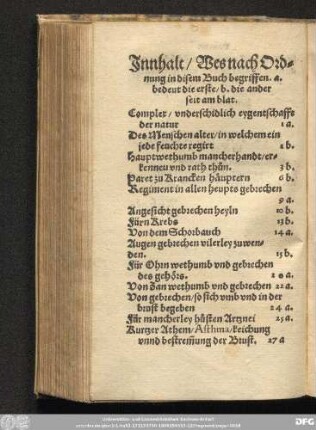 Innhalt / Wes nach Ord=
nung in disem Buch begriffen. a.
bedeut die erste / b. die ander
seit am blat.
Complex / vnderschidlich eygentschafft
der natur 1 a.
Des Menschen alter / in welchem ein
jede feuchte regirt 2 b.
Hauptwethumb mancherhandt / er=
kennen vnd rath thůn. 3 b.
Paret zu Krancken häuptern 6 b.
Regiment in allen heupts gebrechen
9 a.
Angesicht gebrechen heyln 10 b.
Fürn Krebs 13 b.
Von dem Schorbauch 14 a.
Augen gebrechen vilerley zu wen=
den. 15 b.
Für Ohrn wethumb vnd gebrechen
des gehörs. 20 a.
Von Zan wethumb vnd gebrechen 22 a.
Von gebrechen / so sich vmb vnd in der
brust begeben 24 a.
Für mancherley hůsten Artznei 25 a.
Kurtzer Athem / Asthma / keichung
vnnd bestremung der Brust. 27 a